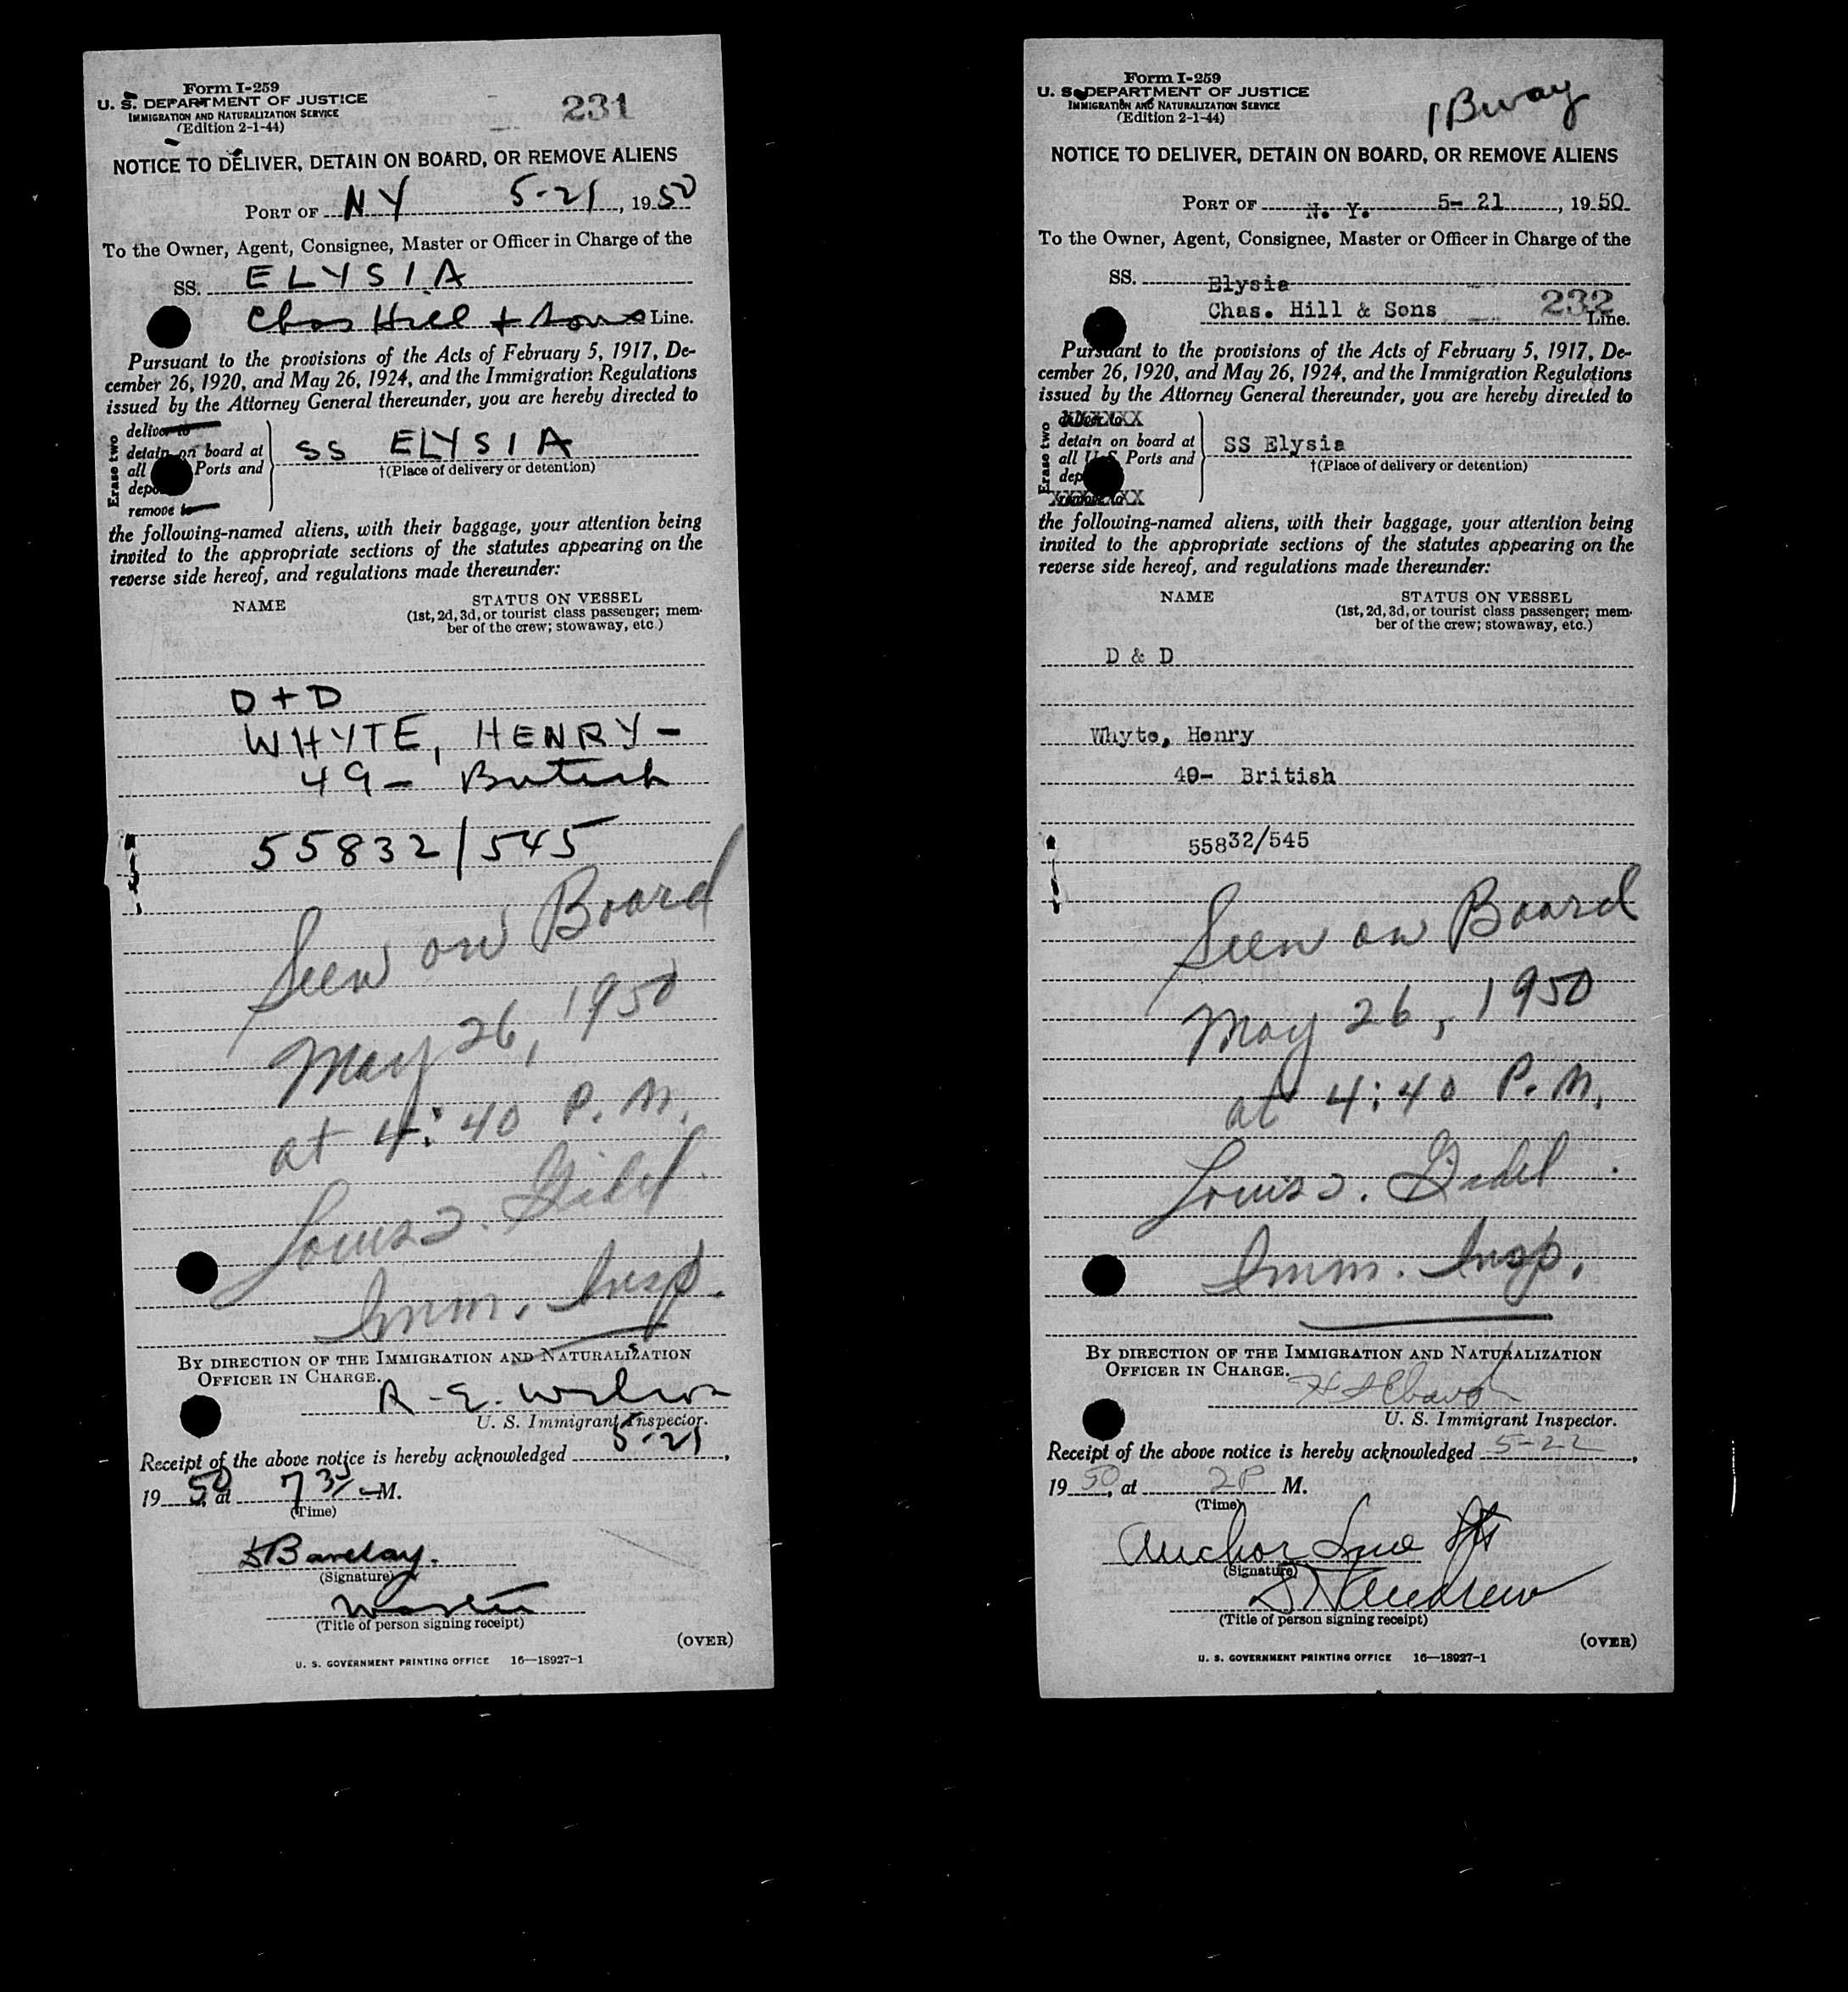 Form I-259
U. S. DEPARTMENT OF JUSTICE
IMMIGRATION AND NATURALIZATION SERVICE
(Edition 2-1-44)
231
NOTICE TO DELIVER, DETAIN ON BOARD, OR REMOVE ALIENS
PORT OF NY 5-21, 1950
To the Owner, Agent, Consignee, Master or Officer in Charge of the
SS. ELYSIA
Chas Hill + Sons Line.
Pursuant to the provisions of the Acts of February 5, 1917, De-
cember 26, 1920, and May 26, 1924, and the Immigration Regulations
issued by the Attorney General thereunder, you are hereby directed to
Erase two
deliver to
detain on board at
all Ports and
remove to
SS ELYSIA
†(Place of delivery or detention)
the following-named aliens, with their baggage, your attention being
invited to the appropriate sections of the statutes appearing on the
reverse side hereof, and regulations made thereunder:
NAME STATUS ON VESSEL
(1st, 2d, 3d, or tourist class passenger; mem-
ber of the crew; stowaway, etc.)
D + D
WHYTE, HENRY -
49 - British
55832/545
Seen on Board
May 26, 1950
at 4:40 P. M.
Louis
Imm. Insp.
BY DIRECTION OF THE IMMIGRATION AND NATURALIZATION
OFFICER IN CHARGE.
R. E. Wilson
U. S. Immigrant Inspector.
Receipt of the above notice is hereby acknowledged 5-21,
1950, at 7 35 M.
(Time)
Barclay.
(Signature)
Master
(Title of person signing receipt)
(OVER)
U. S. GOVERNMENT PRINTING OFFICE 16—18927-1
Form I-259
U. S. DEPARTMENT OF JUSTICE
IMMIGRATION AND NATURALIZATION SERVICE
(Edition 2-1-44)
1 Bway
NOTICE TO DELIVER, DETAIN ON BOARD, OR REMOVE ALIENS
PORT OF N. Y. 5- 21, 1950
To the Owner, Agent, Consignee, Master or Officer in Charge of the
SS. Elysia
232
Chas. Hill & Sons Line.
Pursuant to the provisions of the Acts of February 5, 1917, De-
cember 26, 1920, and May 26, 1924, and the Immigration Regulations
issued by the Attorney General thereunder, you are hereby directed to
Erase two
detain on board at
all U S Ports and
SS Elysia
†(Place of delivery or detention)
the following-named aliens, with their baggage, your attention being
invited to the appropriate sections of the statutes appearing on the
reverse side hereof, and regulations made thereunder:
NAME STATUS ON VESSEL
(1st, 2d, 3d, or tourist class passenger; mem-
ber of the crew; stowaway, etc.)
D & D
Whyte, Henry
49- British
55832/545
Seen on Board
May 26, 1950
at 4:40 P. M.
Louis
Imm. Insp.
BY DIRECTION OF THE IMMIGRATION AND NATURALIZATION
OFFICER IN CHARGE.
U. S. Immigrant Inspector.
Receipt of the above notice is hereby acknowledged 5-22,
1950, at 2P M.
(Time)
Anchor Line
(Signature)
(Title of person signing receipt)
(OVER)
U. S. GOVERNMENT PRINTING OFFICE 16—18927-1